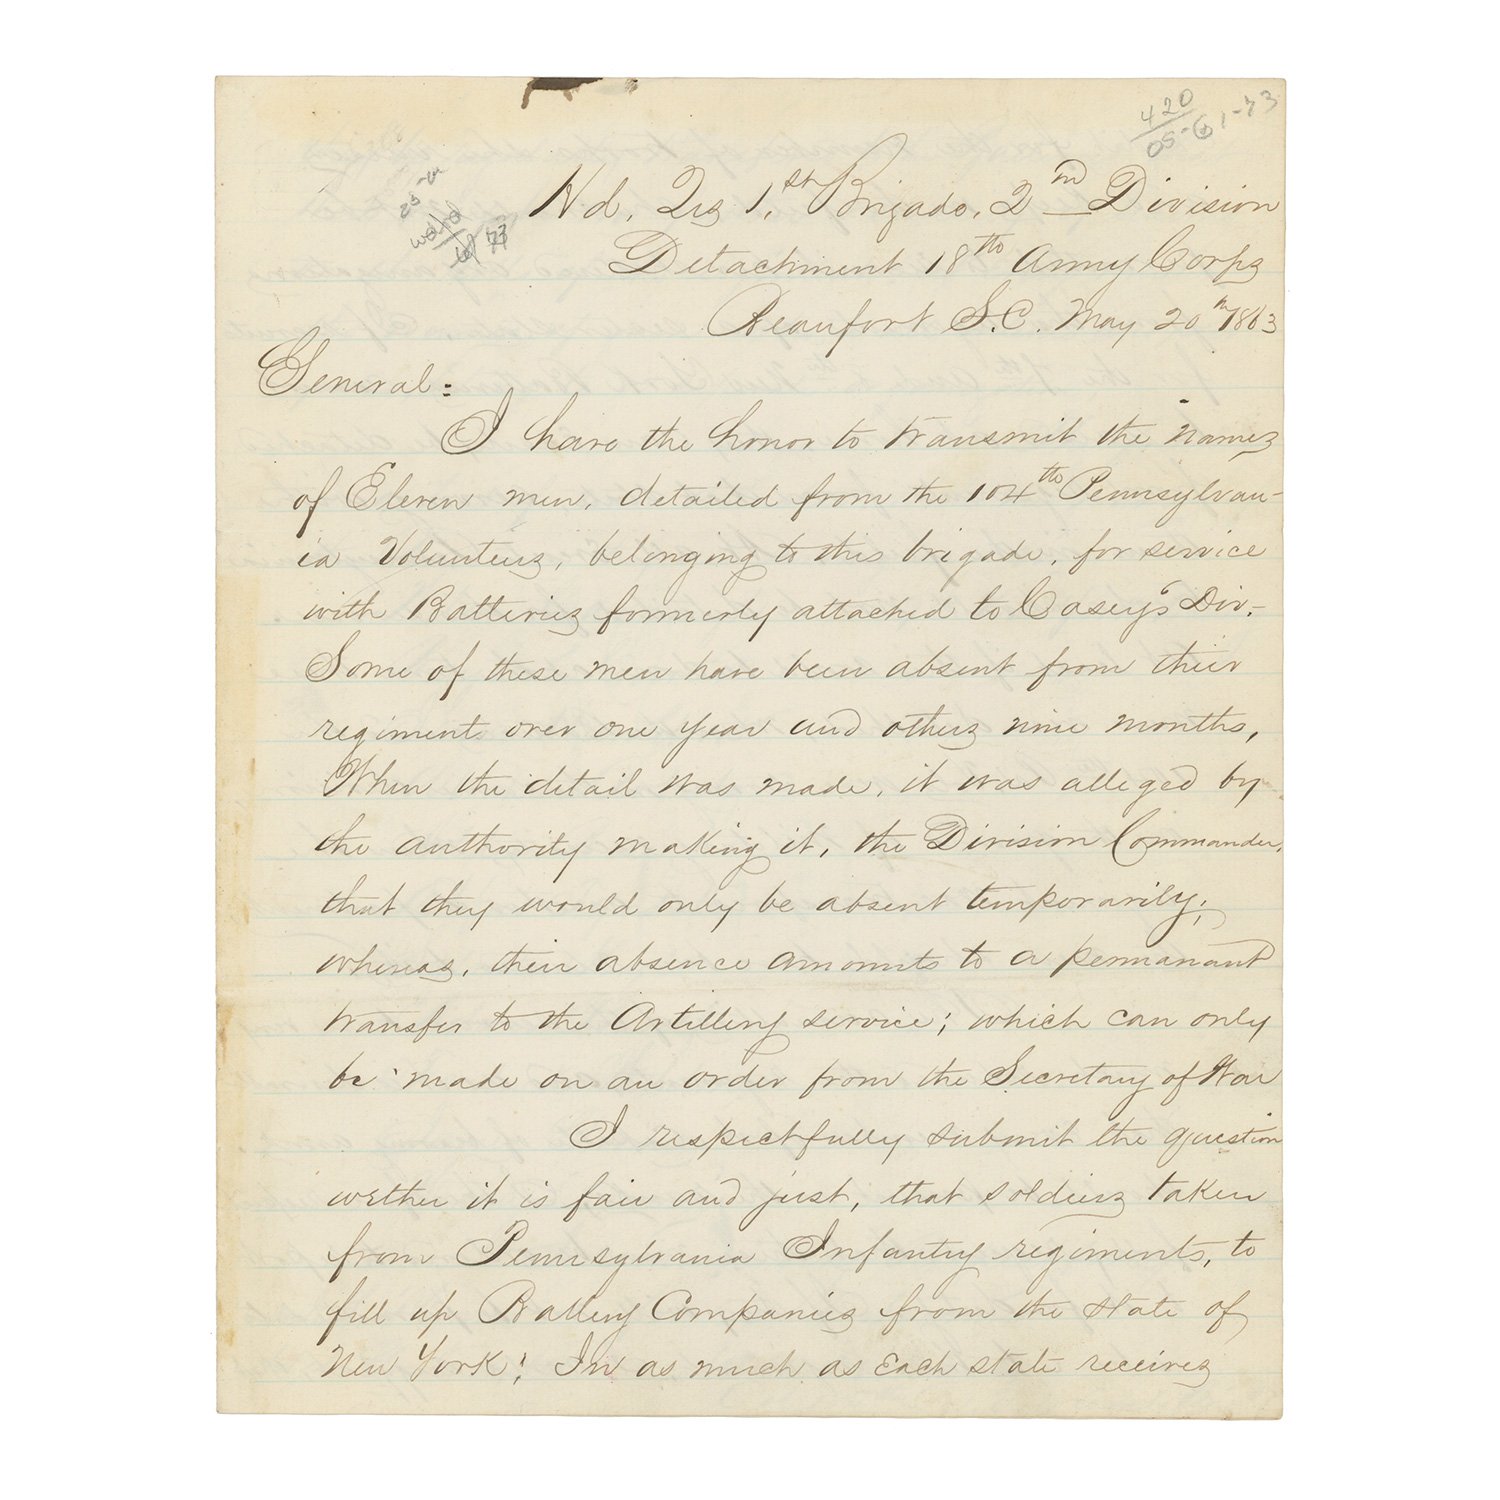 420
05-61-73
Hd. Qrs 1st. Brigade, 2nd Division
Detachment 18th Army Corps
Beaufort S.C. May 20th 1863
General:
I have the honor to transmit the names
of Eleven men, detailed from the 104th Pennsylvan-
ia Volunteers, belonging to this brigade, for service
with Batteries formerly attached to Casey's Div.-
Some of these men have been absent from their
regiment over one year and others nine months,
When the detail was made, it was alleged by
the authority making it, the Division Commander,
that they would only be absent temporarily;
whereas, their absence amounts to a permanant
transfer to the Artillery service; which can only
be made on an order from the Secretary of War
I respectfully submit the question
wether it is fair and just, that soldiers taken
from Pennsylvania Infantry regiments, to
fill up Battery Companies from the state of
New York! In as much as Each state receives